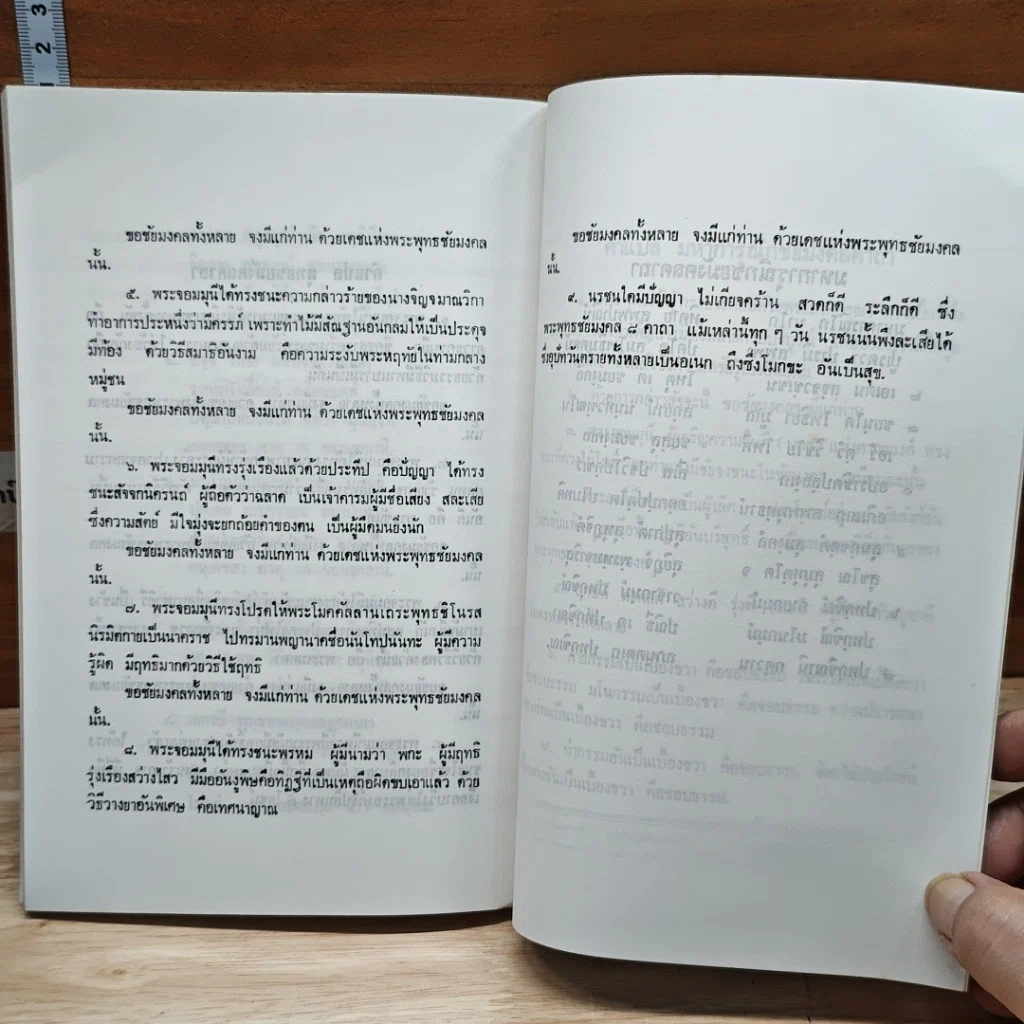 ขอชัยมงคลทั้งหลาย จงมีแก่ท่าน ด้วยเดชแห่งพระพุทธชัยมงคล
นั้น.
๕. พระจอมมุนีได้ทรงชนะความกล่าวร้ายของนางจิญจมาณวิกา
ทำอาการประหนึ่งว่ามีครรภ์ เพราะทำไม้มีสัณฐานอันกลมให้เป็นประดุจ
มีท้อง ด้วยวิธีสมาธิอันงาม คือความระงับพระหฤทัยในท่ามกลาง
หมู่ชน
ขอชัยมงคลทั้งหลาย จงมีแก่ท่าน ด้วยเดชแห่งพระพุทธชัยมงคล
นั้น.
๖. พระจอมมุนีทรงรุ่งเรืองแล้วด้วยประทีป คือปัญญา ได้ทรง
ชนะสัจจกนิครนถ์ ผู้ถือตัวว่าฉลาด เป็นเจ้าคารมผู้มีชื่อเสียง สละเสีย
ซึ่งความสัตย์ มีใจมุ่งจะยกถ้อยคำของตน เป็นผู้มืดมนยิ่งนัก
ขอชัยมงคลทั้งหลาย จงมีแก่ท่าน ด้วยเดชแห่งพระพุทธชัยมงคล
นั้น.
๗. พระจอมมุนีทรงโปรดให้พระโมคคัลลานเถระพุทธชิโนรส
นิรมิตกายเป็นนาคราช ไปทรมานพญานาคชื่อนันโทปนันทะ ผู้มีความ
รู้ผิด มีฤทธิมากด้วยวิธีใช้ฤทธิ
ขอชัยมงคลทั้งหลาย จงมีแก่ท่าน ด้วยเดชแห่งพระพุทธชัยมงคล
นั้น.
๘. พระจอมมุนีได้ทรงชนะพรหม ผู้มีนามว่า พกะ ผู้มีฤทธิ
รุ่งเรืองสว่างไสว มีมืออันงูพิษคือทิฏฐิที่เป็นเหตุถือผิดขบเอาแล้ว ด้วย
วิธีวางยาอันพิเศษ คือเทศนาญาณ
ขอชัยมงคลทั้งหลาย จงมีแก่ท่าน ด้วยเดชแห่งพระพุทธชัยมงคล
นั้น.
๙. นรชนใดมีปัญญา ไม่เกียจคร้าน สวดก็ดี ระลึกก็ดี ซึ่ง
พระพุทธชัยมงคล ๘ คาถา แม้เหล่านี้ทุก ๆ วัน นรชนนั้นพึงละเสียได้
ซึ่งอุปัทวันตรายทั้งหลายเป็นอเนก ถึงซึ่งโมกขะ อันเป็นสุข.
2
3